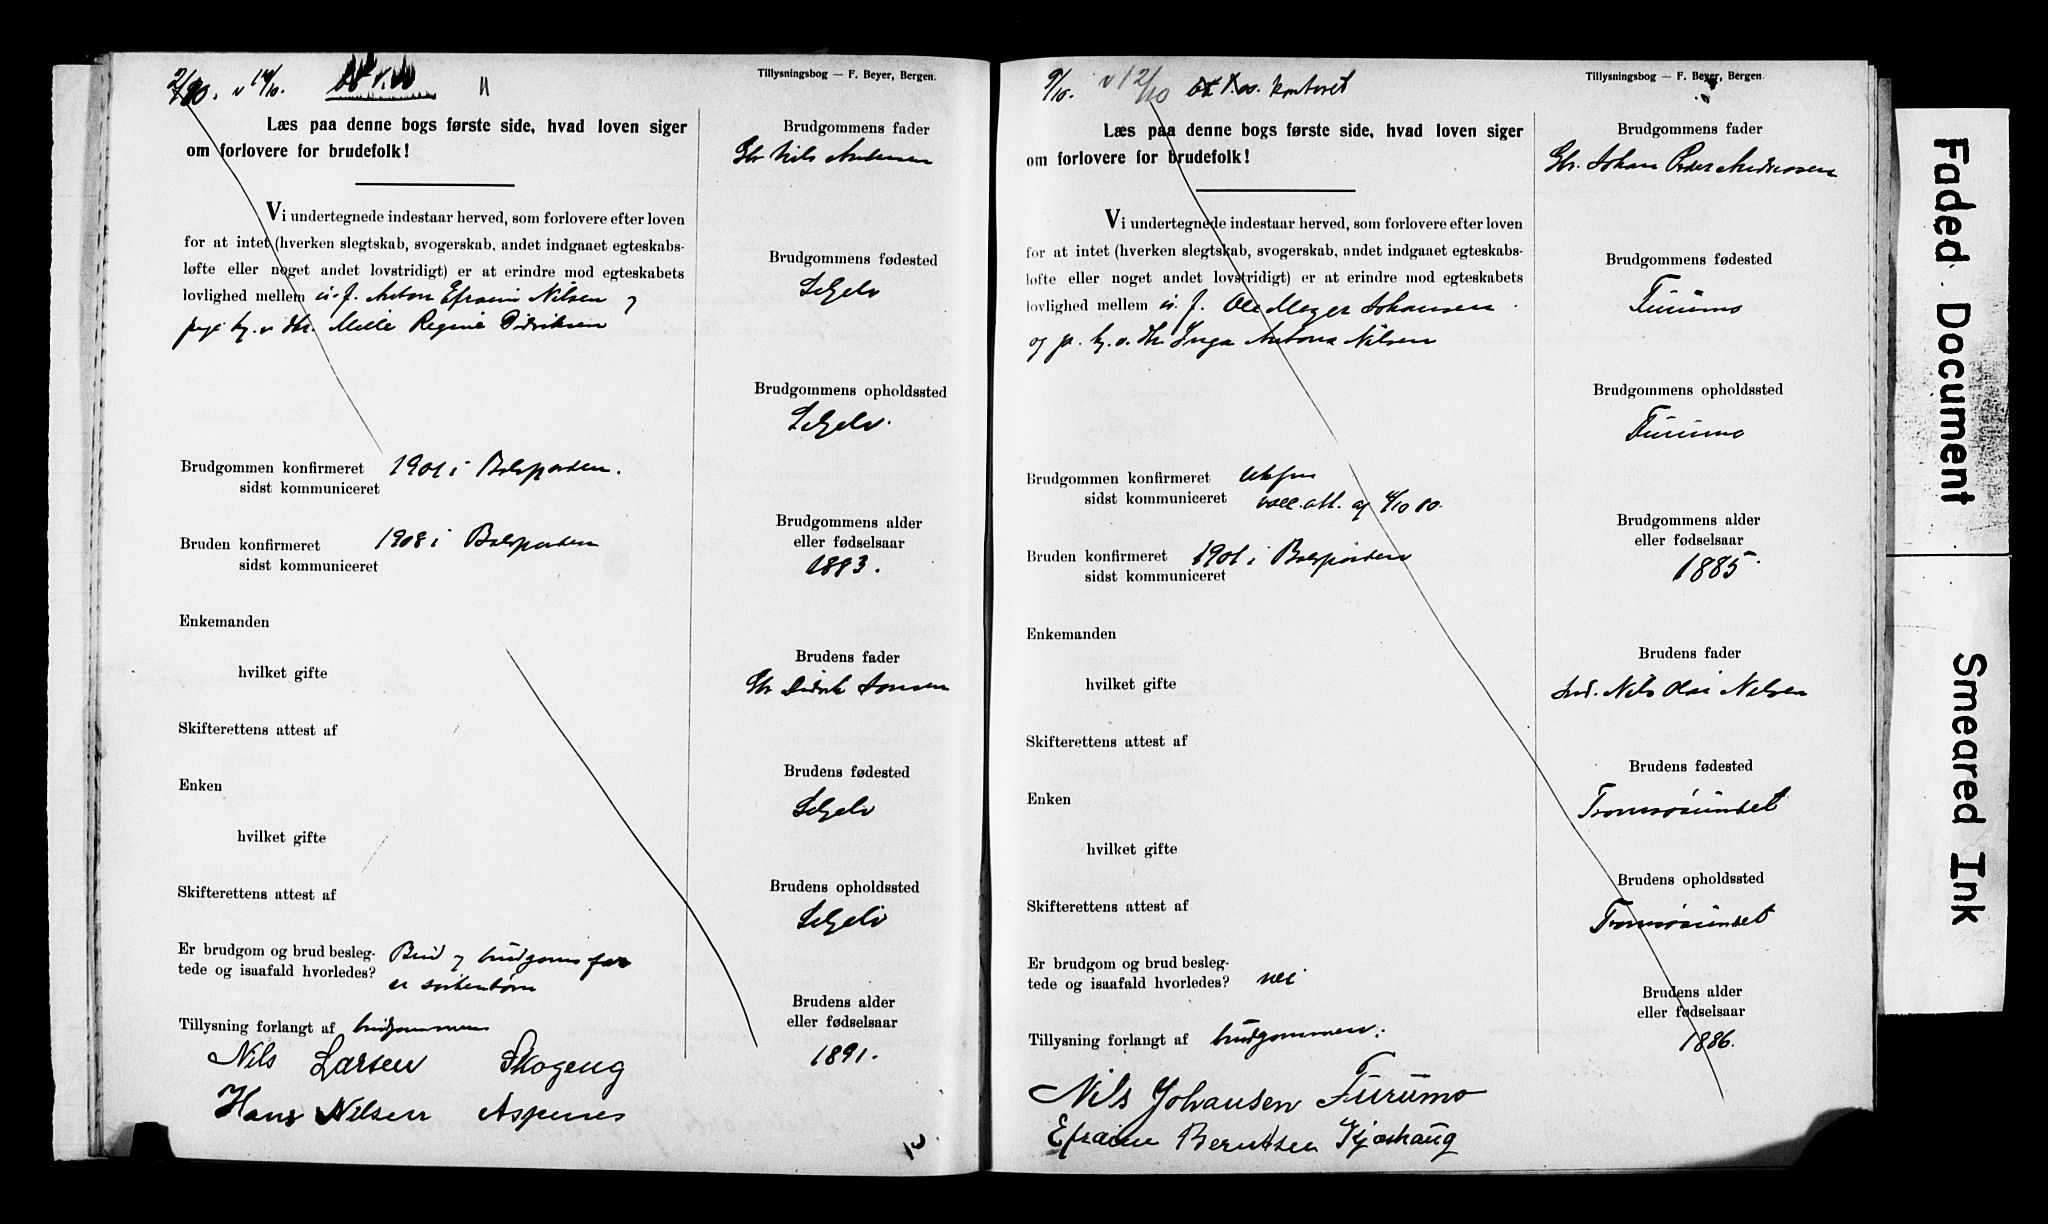 Tillysningbog — F. Beyer, Bergen.
v 14/10.
Læs paa denne bogs første side, hvad loven siger
om forlovere for brudefolk!
Vi undertegnede indestaar herved, som forlovere efter loven
for at intet (hverken slegtskab, svogerskab, andet indgaaet egteskabs-
løfte eller noget andet lovstridigt) er at erindre mod egteskabets
lovlighed mellem Anton Efraim Nilsen
Regine Didriksen
Brudgommen konfirmeret 1901 i Balsfjorden.
sidst kommuniceret
Bruden konfirmeret 1908 i Balsfjorden
sidst kommuniceret
Enkemanden
hvilket gifte
Skifterettens attest af
Enken
hvilket gifte
Skifterettens attest af
Er brudgom og brud besleg- Brud og brudgoms far
tede og isaafald hvorledes? er søskenbørn
Tillysning forlangt af brudgommen
Nils Larsen Skogeng
Hans Nilsen Aspenes
Brudgommens fader
Gbr Nils Andersen
Brudgommens fødested
Selgelv
Brudgommens opholdssted
Selgelv.
Brudgommens alder
eller fødselsaar
1883.
Brudens fader
Gbr Didrik Jonsen
Brudens fødested
Selgelv
Brudens opholdssted
Selgelv
Brudens alder
eller fødselsaar
1891.
Tillysningbog — F. Beyer, Bergen.
9/10. v 12/10 kontoret
Læs paa denne bogs første side, hvad loven siger
om forlovere for brudefolk!
Vi undertegnede indestaar herved, som forlovere efter loven
for at intet (hverken slegtskab, svogerskab, andet indgaaet egteskabs-
løfte eller noget andet lovstridigt) er at erindre mod egteskabets
lovlighed mellem Ole Meyer Johansen
og Inga Antona Nilsen
Brudgommen konfirmeret
sidst kommuniceret
Bruden konfirmeret 1901 i Balsfjorden
sidst kommuniceret
Enkemanden
hvilket gifte
Skifterettens attest af
Enken
hvilket gifte
Skifterettens attest af
Er brudgom og brud besleg-
tede og isaafald hvorledes? nei
Tillysning forlangt af brudgommen.
Nils Johansen Furumo
Efraim Berntsen Kjoshaug
Brudgommens fader
Gbr. Johan Peder Andreassen
Brudgommens fødested
Furumo
Brudgommens opholdssted
Furumo
Brudgommens alder
eller fødselsaar
1885.
Brudens fader
Nils Olai Nilsen
Brudens fødested
Tromsøsundet
Brudens opholdssted
Tromsøsundet
Brudens alder
eller fødselsaar
1886.
Faded Document
Smeared Ink